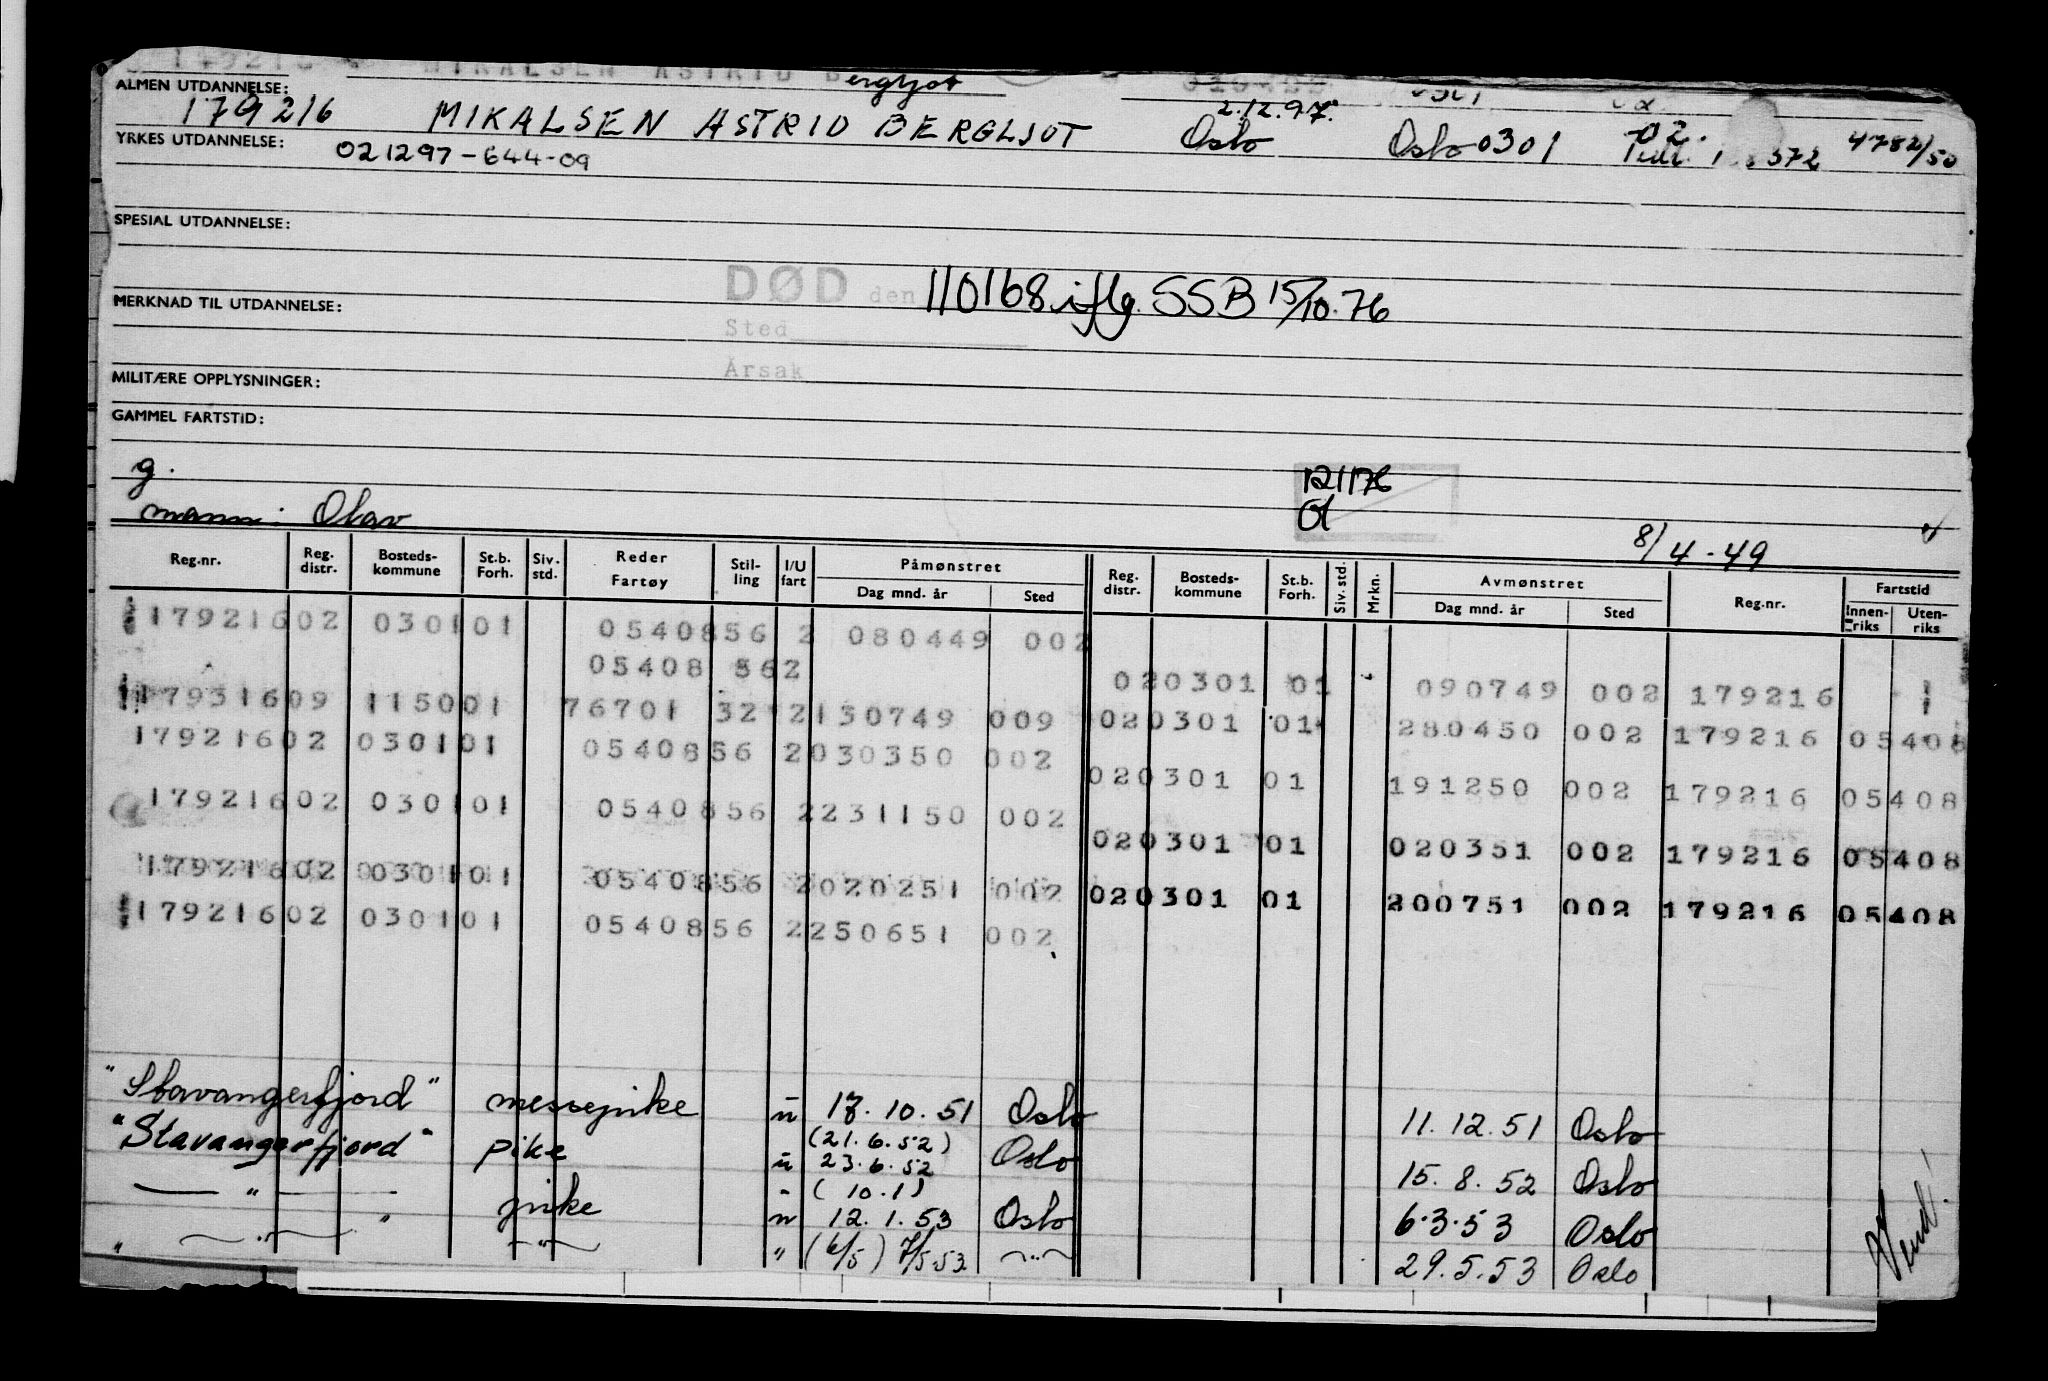 MIKALSEN ASTRID Bergljot
ALMEN UTDANNELSE:
179216 MIKALSEN ASTRID BERGLJOT 2.12.97. Oslo Oslo 0301 02. 372 4782/50
YRKES UTDANNELSE:
021297-644-09
SPESIAL UTDANNELSE:
DØD den 110168 iflg. SSB 15/10.76
MERKNAD TIL UTDANNELSE:
Sted
Årsak
MILITÆRE OPPLYSNINGER:
GAMMEL FARTSTID:
g. 121176
mann: Olav Ol
8/4-49
Reg.nr. Reg. distr. Bosteds-kommune St.b. Forh. Siv. std. Reder Fartøy Stil-ling I/U fart Påmønstret Dag mnd. år Sted Reg. distr. Bosteds-kommune St.b. Forh. Siv. std. Mrkn. Avmønstret Dag mnd. år Sted Reg.nr. Fartstid Innen-riks Uten-riks
17921602 030101 0540856 2 080449 002
05408 562 020301 01 090749 002 179216
17931609 115001 76701 32 2130749 009 020301 01 280450 002 179216 05408
17921602 030101 0540856 2030350 002
020301 01 191250 002 179216 05408
17921602 030101 0540856 2231150 002
020301 01 020351 002 179216 05408
17921602 030101 0540856 2020251 002
020301 01 200751 002 179216 05408
17921602 030101 0540856 2250651 002
"Stavangerfjord" messepike u 18.10.51 Oslo 11.12.51 Oslo
"Stavangerfjord" pike u (21.6.52) 23.6.52 Oslo 15.8.52 Oslo
— " — pike " (10.1) 12.1.53 Oslo 6.3.53 Oslo
" — " — — " — " (6/5) 7/5.53 — " — 29.5.53 Oslo